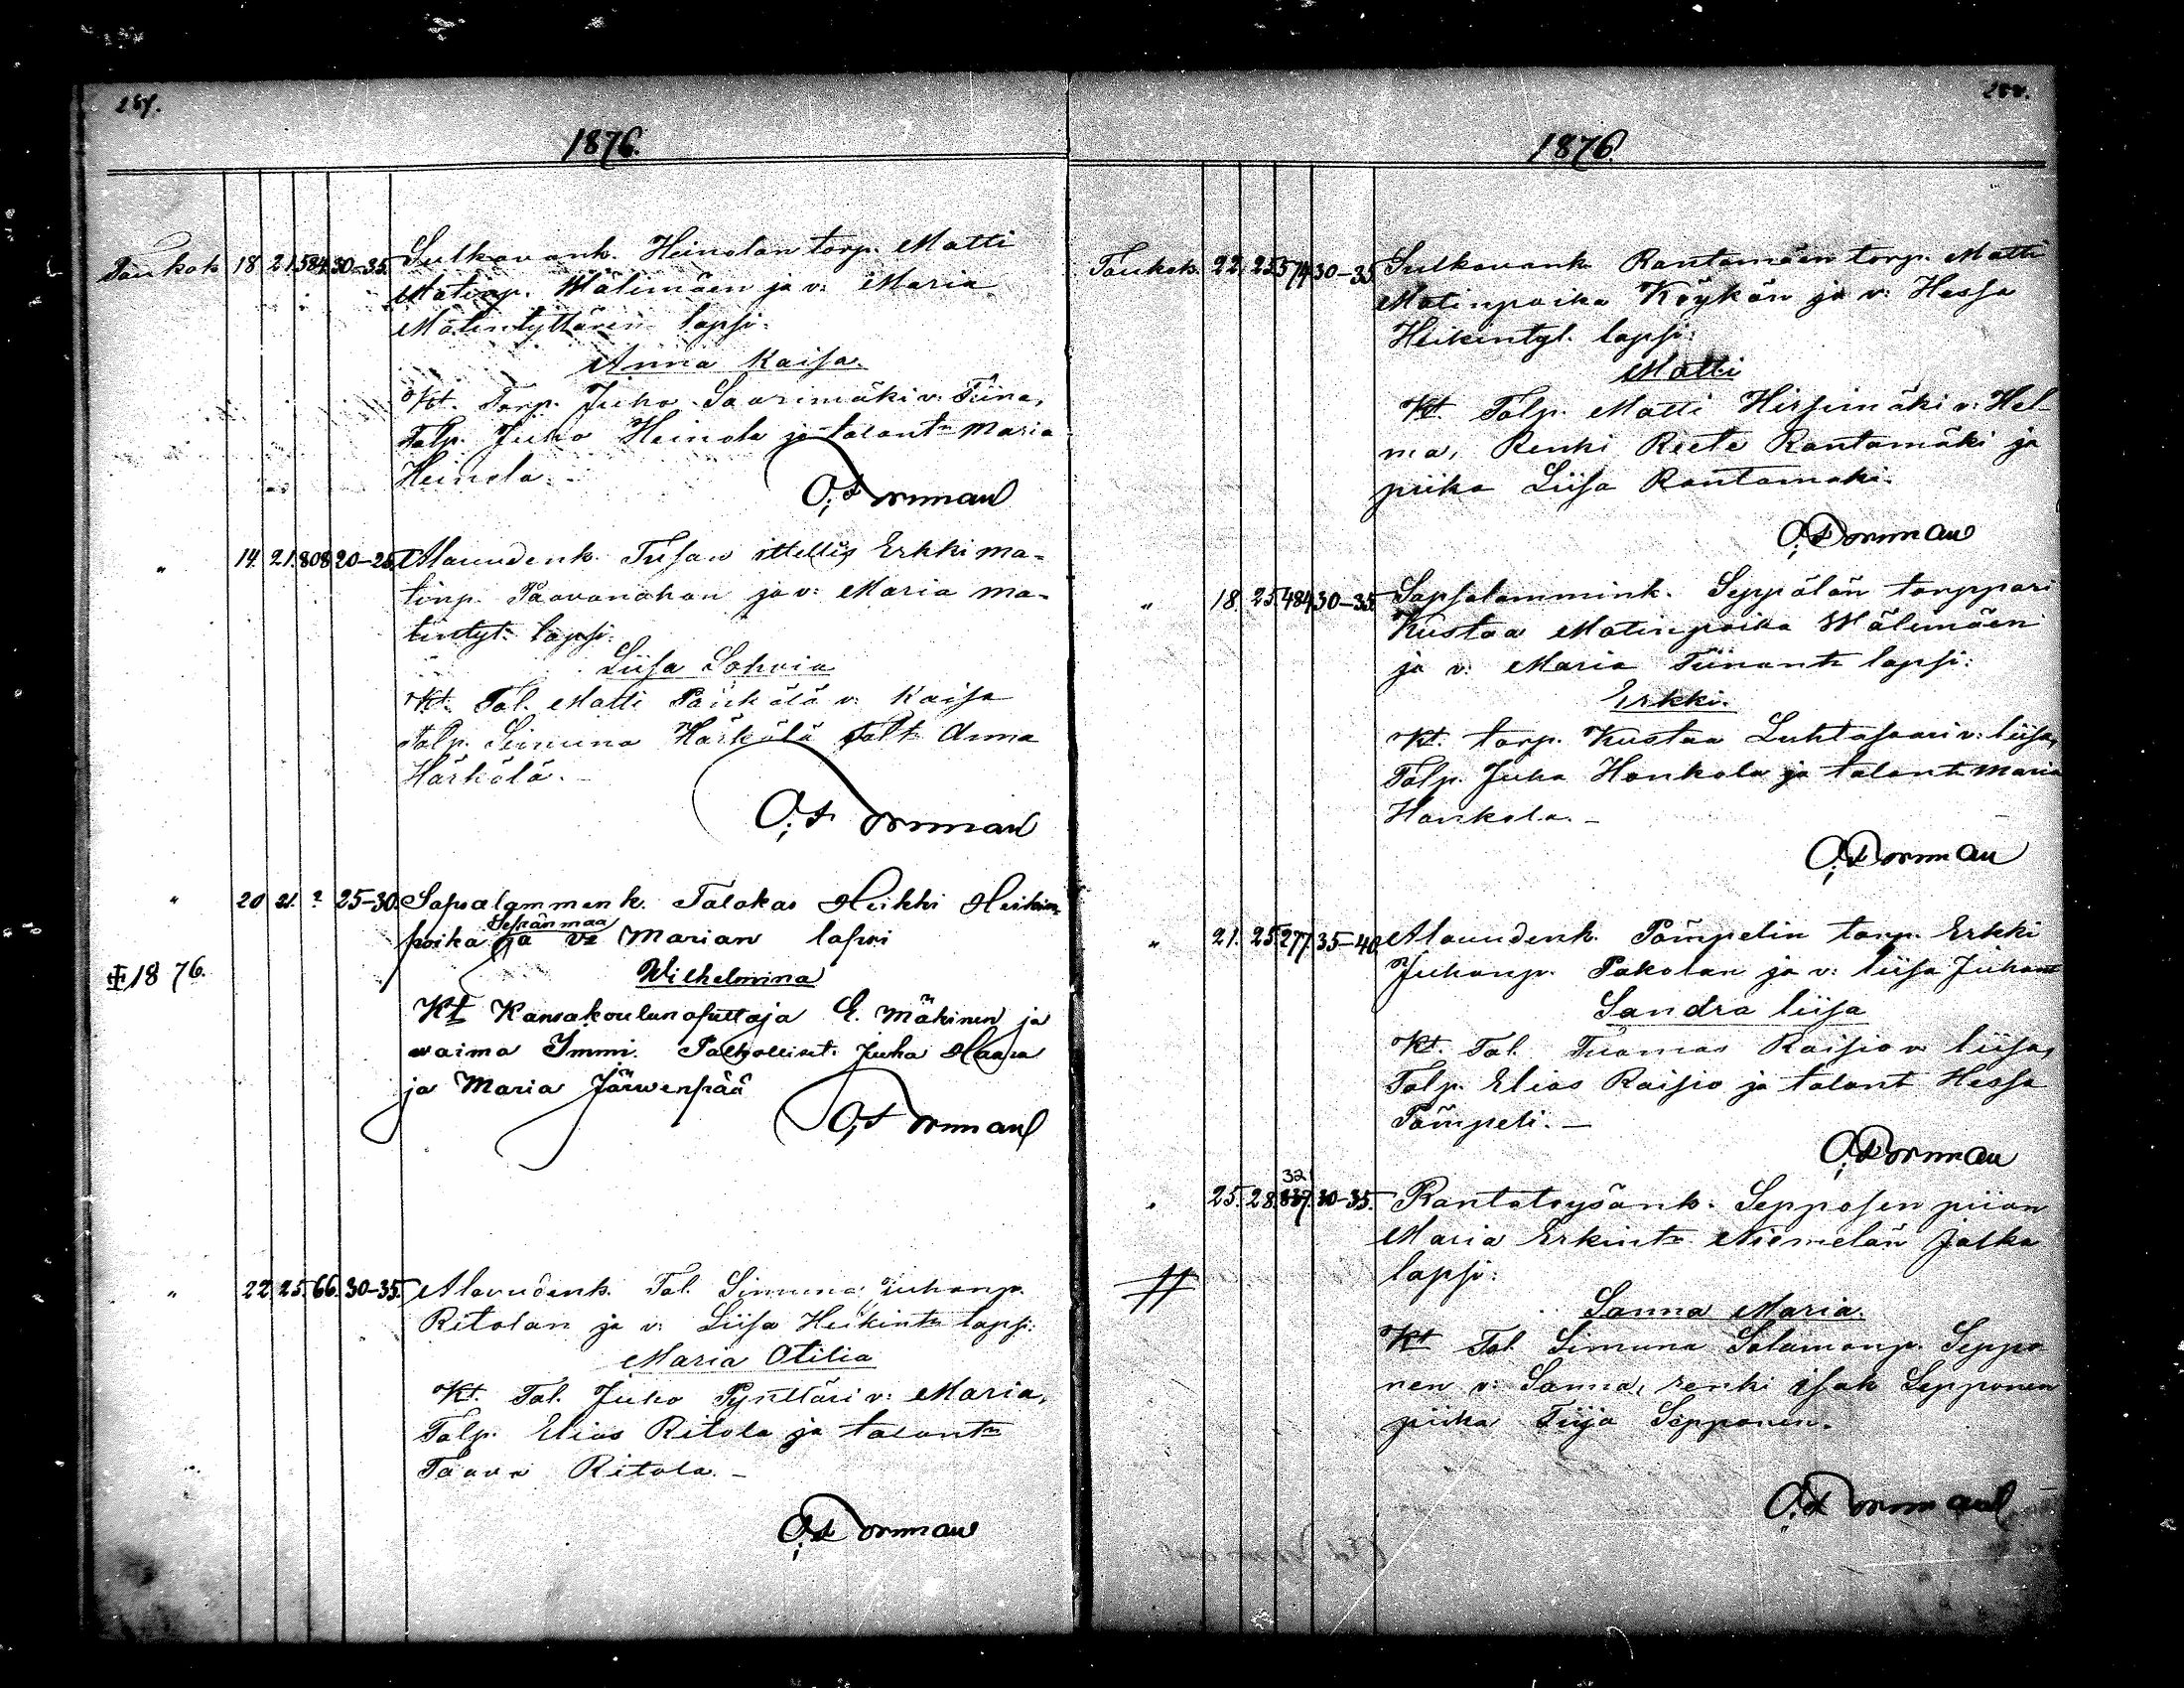 287.
1876.
Toukok. 18 21. 584. 30-35. Sulkavank. Heinolan torp. Matti
Matinp. Wälimäen ja v: Maria
Matintyttären lapsi:
Anna Kaisa.
Kt. Torp. Juho Saarimäki v: Tiina,
Talp. Juho Heinola ja talont. Maria
Heinola.
O. Forsman
" 14. 21. 808 20-25. Alavudenk. Tusan ittellis Erkki ma-
tinp. Paavanahon ja v: Maria ma-
tintyt. lapsi:
Liisa Sohvia
Kt. Tal. Matti Pänkälä v: Kaisa
Talp. Simuna Härkölä Talt. Anna
Härkölä.
" 20 21. ? 25-30. Sapsalammenk. Talokas Heikki Heikin-
Sepänmaa
poika ja vo Marian lapsi
‡ 1876.
Wilhelmina
Kt Kansakoulunopettaja E. Mäkinen ja
waima Immi. Palkollist. Juha Haapa
ja Maria Järwenpää
" 22. 25. 66. 30-35. Alavudenk. Tal. Simuna Juhonp.
Ritolan ja v: Liisa Heikint. lapsi:
Maria Otilia
Kt. Tal. Juho Pynttäri v: Maria,
Talp. Elias Ritola ja talont.
Taava Ritola.
288.
1876.
Toukok. 22. 25. 574. 30-35. Sulkavank. Rantamäen torp. Matti
Matinpoika Köykän ja v: Hessa
Heikintyt. lapsi:
Matti
Kt. Talp. Matti Hirsimäki v: Hel-
ma, Renki Reete Rantamäki ja
piika Liisa Rantamäki.
" 18. 25. 484. 30-35. Sapsalammink. Seppälän torppari
Kustaa Matinpoika Wälimäen
ja v: Maria Tiinant. lapsi:
Erkki.
Kt. torp. Kustaa Luhtasaari v: liisa,
Talp. Juha Honkola ja talont. maria
Honkola.
" 21. 25. 277. 35-40. Alavudenk. Pömpelin torp. Erkki
Juhanp. Pakolan ja v: liisa Juhant
Sandra liisa
Kt. Tal. Tuomas Raisio v: liisa,
Talp. Elias Raisio ja talont Hessa
Pömpeli.
32
" 25. 28. 837. 30-35. Rantatöysänk. Sepposen piian
Maria Erkint. Niemelän jalka
lapsi:
Sanna Maria.
Kt Tal. Simuna Salamonp. Seppo
nen v: Sanna, renki isak Sepponen
piika Tiija Sepponen.